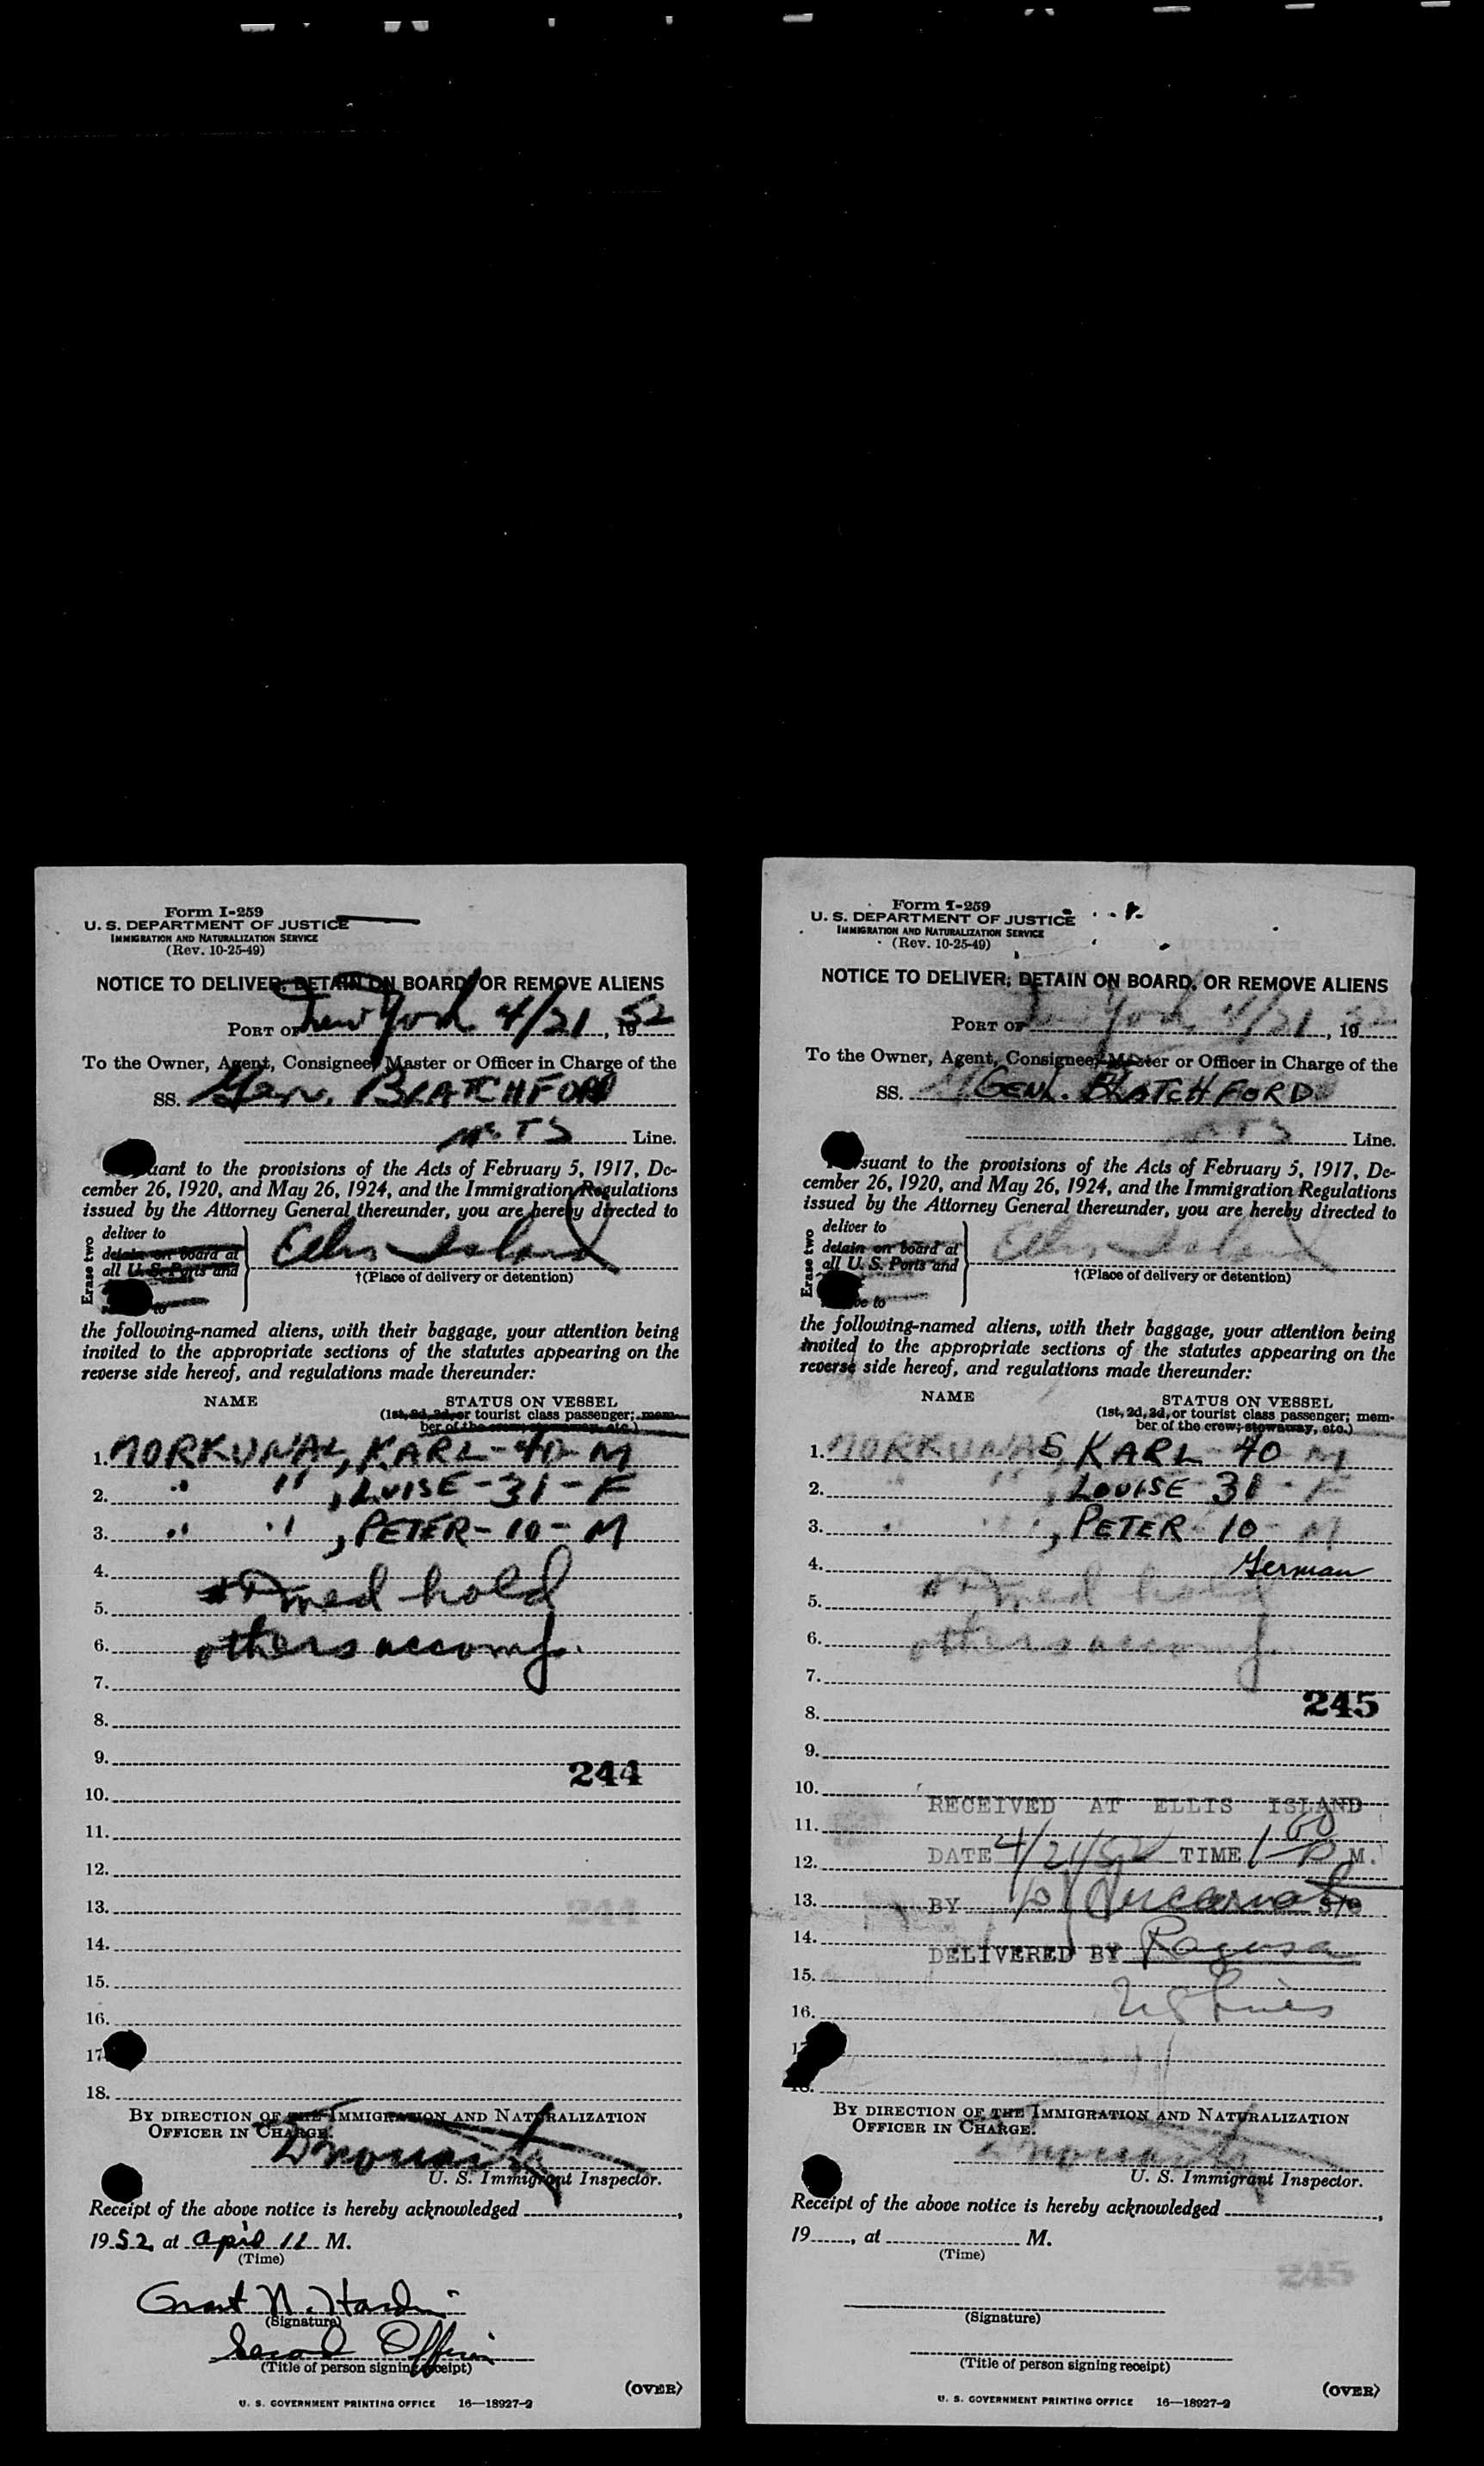 Form I-259
U. S. DEPARTMENT OF JUSTICE
IMMIGRATION AND NATURALIZATION SERVICE
(Rev. 10-25-49)
NOTICE TO DELIVER, DETAIN ON BOARD, OR REMOVE ALIENS
PORT OF New York 4/21, 1952
To the Owner, Agent, Consignee, Master or Officer in Charge of the
SS. Gen. BLATCHFORD
MSTS Line.
Pursuant to the provisions of the Acts of February 5, 1917, De-
cember 26, 1920, and May 26, 1924, and the Immigration Regulations
issued by the Attorney General thereunder, you are hereby directed to
Erase two
deliver to
detain on board at
all U. S. Ports and
to
Ellis Island
†(Place of delivery or detention)
the following-named aliens, with their baggage, your attention being
invited to the appropriate sections of the statutes appearing on the
reverse side hereof, and regulations made thereunder:
NAME STATUS ON VESSEL
(1st, 2d, 3d, or tourist class passenger; mem-
ber of the crew; stowaway, etc.)
1. MORKUNAS, KARL - 40 - M
2. " " , LUISE - 31 - F
3. " " , PETER - 10 - M
4.
med hold
5.
6. others accomp.
7.
8.
9.
244
10.
11.
12.
13.
244
14.
15.
16.
17.
18.
BY DIRECTION OF THE IMMIGRATION AND NATURALIZATION
OFFICER IN CHARGE.
U. S. Immigrant Inspector.
Receipt of the above notice is hereby acknowledged
1952, at April 11 M.
(Time)
Grant N. Hardin
(Signature)
Second Officer
(Title of person signing receipt)
(OVER)
U. S. GOVERNMENT PRINTING OFFICE 16—18927-2
Form I-259
U. S. DEPARTMENT OF JUSTICE
IMMIGRATION AND NATURALIZATION SERVICE
(Rev. 10-25-49)
NOTICE TO DELIVER, DETAIN ON BOARD, OR REMOVE ALIENS
PORT OF New York 4/21, 1952
To the Owner, Agent, Consignee, Master or Officer in Charge of the
SS. GENL. BLATCHFORD
MSTS Line.
Pursuant to the provisions of the Acts of February 5, 1917, De-
cember 26, 1920, and May 26, 1924, and the Immigration Regulations
issued by the Attorney General thereunder, you are hereby directed to
Erase two
deliver to
detain on board at
all U. S. Ports and
to
Ellis Island
†(Place of delivery or detention)
the following-named aliens, with their baggage, your attention being
invited to the appropriate sections of the statutes appearing on the
reverse side hereof, and regulations made thereunder:
NAME STATUS ON VESSEL
(1st, 2d, 3d, or tourist class passenger; mem-
ber of the crew; stowaway, etc.)
1. MORKUNAS, KARL - 40 - M
2. " " , LOUISE - 31 - F
3. " " , PETER - 10 - M
4. German
med hold
5.
6. others accomp.
7.
245
8.
9.
10.
RECEIVED AT ELLIS ISLAND
11.
12. DATE 4/21/52 TIME 1 00 P M.
13. BY
14.
DELIVERED BY Ragusa
15.
16. US Lines
17.
18.
BY DIRECTION OF THE IMMIGRATION AND NATURALIZATION
OFFICER IN CHARGE.
U. S. Immigrant Inspector.
Receipt of the above notice is hereby acknowledged
19, at M.
(Time)
245
(Signature)
(Title of person signing receipt)
(OVER)
U. S. GOVERNMENT PRINTING OFFICE 16—18927-2